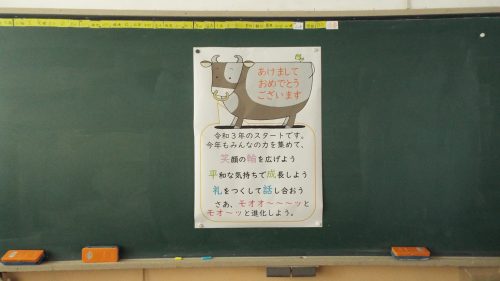 あけまして
おめでとう
ございます
令和３年のスタートです。
今年もみんなの力を集めて、
笑顔の輪を広げよう
平和な気持ちで成長しよう
礼をつくして話し合おう
さあ、モオオ～～～ッと
モオ～ッと進化しよう。